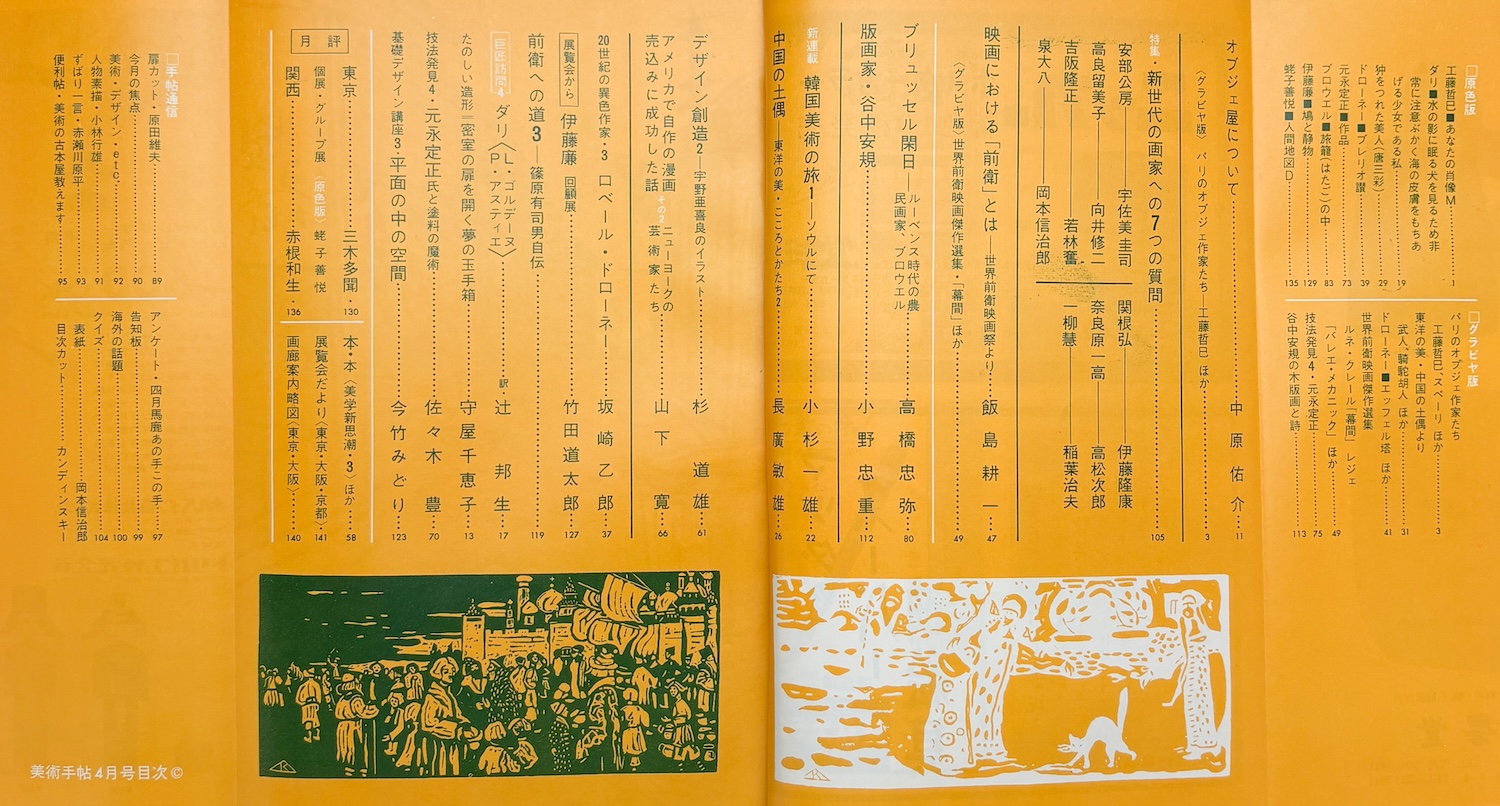 □原色版
工藤哲巳■あなたの肖像M……1
ダリ■水の影に眠る犬を見るため非
常に注意ぶかく海の皮膚をもちあ
げる少女である私……19
狆をつれた美人(唐三彩)……29
ドローネー■ブレリオ讃……39
元永定正■作品……73
ブロウエル■旅籠(はたご)の中……83
伊藤廉■鳩と静物……129
蛯子善悦■人間地図D……135
□グラビヤ版
パリのオブジェ作家たち
工藤哲巳、スペーリ ほか……3
東洋の美・中国の土偶より
武人、騎駝胡人 ほか……31
ドローネー■エッフェル塔 ほか……41
世界前衛映画傑作選集
ルネ・クレール「幕間」レジェ
「バレエ・メカニック」ほか……49
技法発見4・元永定正……75
谷中安規の木版画と詩……113
オブジェ屋について……中原佑介…11
〈グラビヤ版〉パリのオブジェ作家たち―工藤哲巳 ほか……3
特集・新世代の画家への7つの質問……105
安部公房――宇佐美圭司
高良留美子――向井修二
吉阪隆正――若林奮
泉大八――岡本信治郎
関根弘――伊藤隆康
奈良原一高――高松次郎
一柳慧――稲葉治夫
映画における「前衛」とは―世界前衛映画祭より……飯島耕一…47
〈グラビヤ版〉世界前衛映画傑作選集・「幕間」ほか……49
ブリュッセル閑日―ルーベンス時代の農民画家、ブロウエル……高橋忠弥…80
版画家・谷中安規……小野忠重…112
新連載 韓国美術の旅1―ソウルにて……小杉一雄…22
中国の土偶―東洋の美・こころとかたち2……長廣敏雄…26
デザイン創造2―宇野亜喜良のイラスト……杉道雄…61
アメリカで自作の漫画
売込みに成功した話 その2 ニューヨークの芸術家たち……山下寛…66
20世紀の異色作家・3 ロベール・ドローネー……坂崎乙郎…37
展覧会から 伊藤廉 回顧展……竹田道太郎…127
前衛への道3―篠原有司男自伝……119
巨匠訪問4 ダリ〈L・ゴルデーヌ P・アスティエ〉……訳 辻邦生…17
たのしい造形=密室の扉を開く夢の玉手箱……守屋千恵子…13
技法発見4・元永定正氏と塗料の魔術……佐々木豊…70
基礎デザイン講座3・平面の中の空間……今竹みどり…123
月評
東京……三木多聞…130
個展・グループ展〈原色版〉蛯子善悦
関西……赤根和生…136
本・本〈美学新思潮・3〉ほか……58
展覧会だより〈東京・大阪・京都〉……141
画廊案内略図〈東京・大阪〉……140
□手帖通信
扉カット・原田維夫……89
今月の焦点……90
美術・デザイン・etc……92
人物素描・小林行雄……91
ずばり一言・赤瀬川原平……93
便利帖・美術の古本屋教えます……95
アンケート・四月馬鹿あの手この手……97
告知板……99
海外の話題……100
クイズ……104
表紙……岡本信治郎
目次カット……カンディンスキー
美術手帖4月号目次©